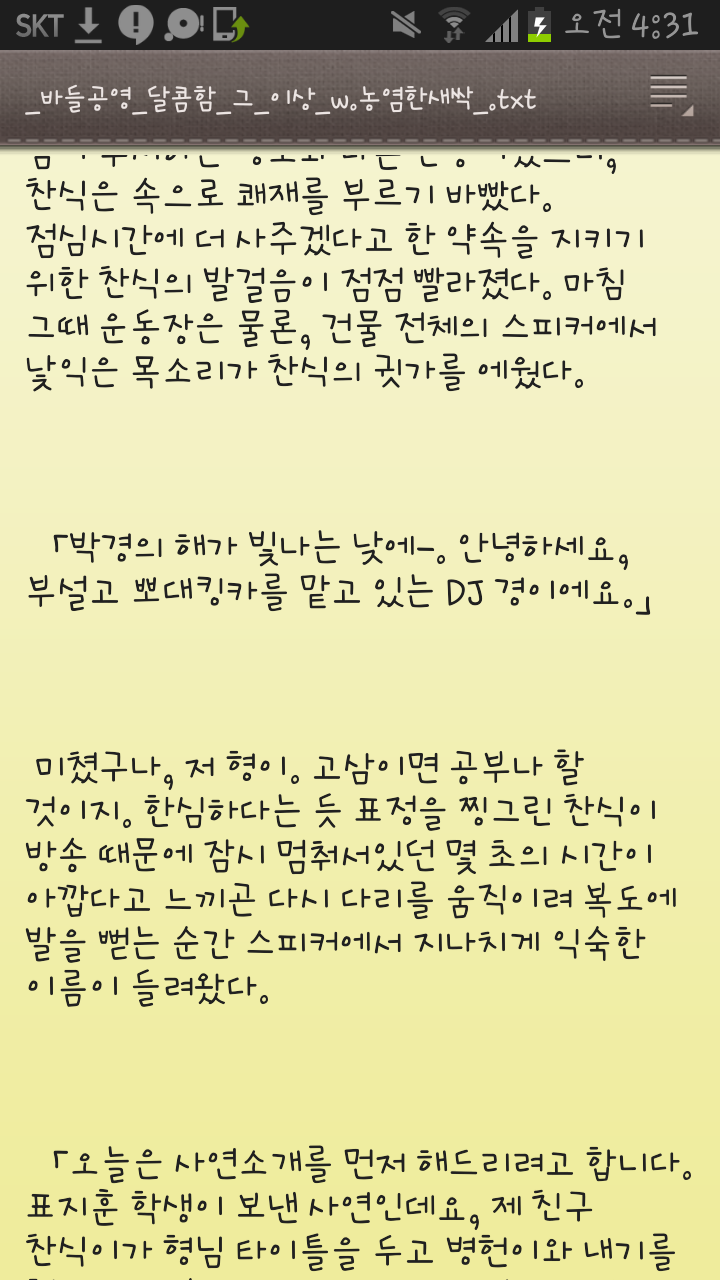 SKT 오전 4:31
_바들공영_달콤함_그_이상_w.농염한새싹_.txt
찬식은 속으로 쾌재를 부르기 바빴다.
점심시간에 더 사주겠다고 한 약속을 지키기
위한 찬식의 발걸음이 점점 빨라졌다. 마침
그때 운동장은 물론, 건물 전체의 스피커에서
낯익은 목소리가 찬식의 귓가를 에웠다.
「박경의 해가 빛나는 낮에-. 안녕하세요,
부설고 뽀대킹카를 맡고 있는 DJ 경이에요.」
미쳤구나, 저 형이. 고삼이면 공부나 할
것이지. 한심하다는 듯 표정을 찡그린 찬식이
방송 때문에 잠시 멈춰서있던 몇 초의 시간이
아깝다고 느끼곤 다시 다리를 움직이려 복도에
발을 뻗는 순간 스피커에서 지나치게 익숙한
이름이 들려왔다.
「오늘은 사연소개를 먼저 해드리려고 합니다.
표지훈 학생이 보낸 사연인데요, 제 친구
찬식이가 형님 타이틀을 두고 병헌이와 내기를